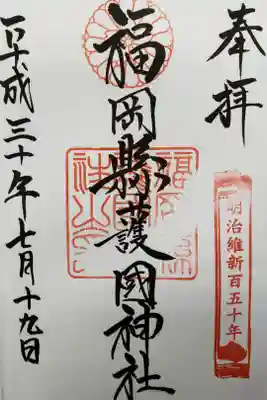 奉拝
明治維新百五十年
福岡縣護國神社
平成三十年七月十九日